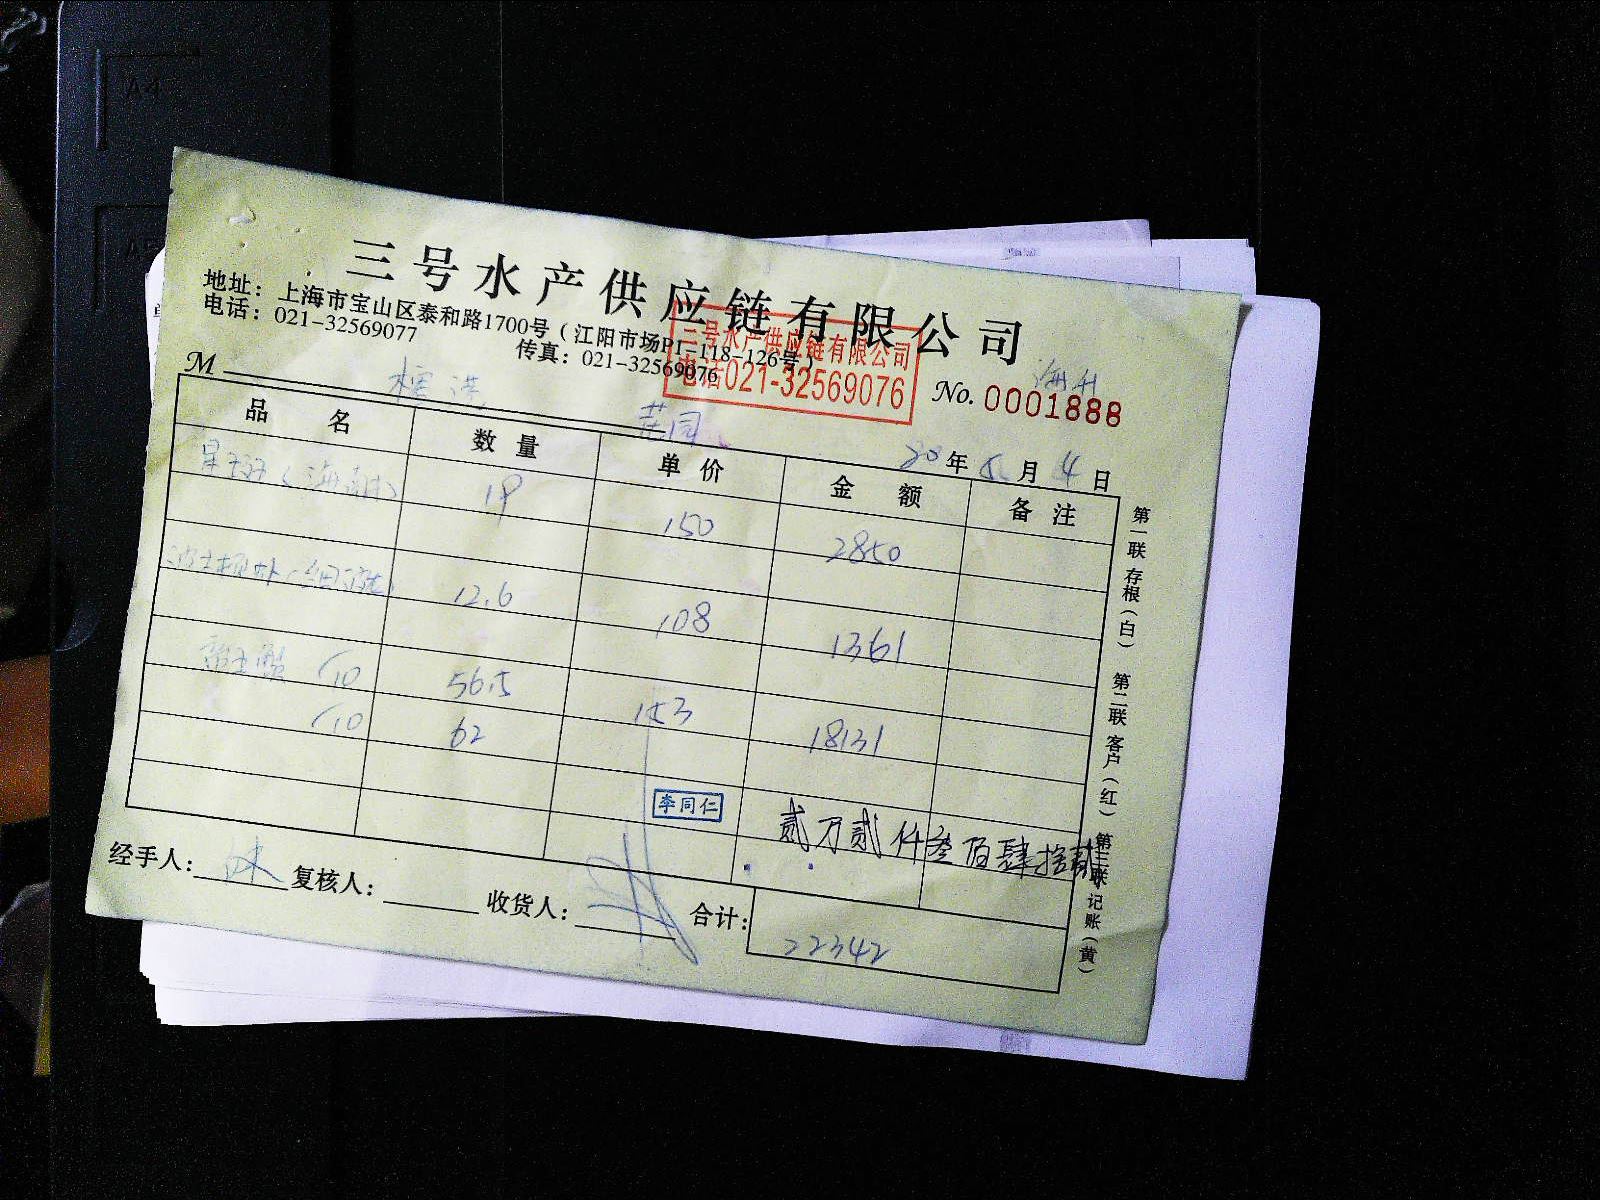 三号水产供应链有限公司
地址：上海市宝山区泰和路1700号（江阳市场P1-118-126号）
电话：021-32569077 传真：021-32569076
三号水产供应链有限公司
电话021-32569076
M
No. 0001888
20年 月4日
品 名 数 量 单 价 金 额 备 注
19 150 2850
12.6 108 1361
56.5 153 18131
62
李同仁
贰万贰仟叁佰肆拾贰
经手人： 复核人： 收货人： 合计：22342
第一联 存根（白） 第二联 客户（红） 第三联 记账（黄）
A4
A5